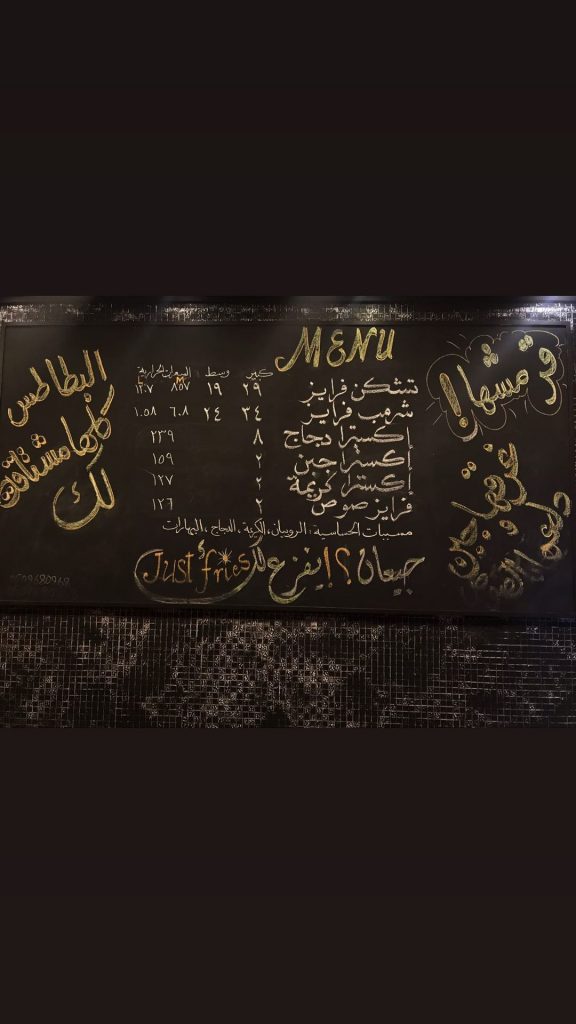 MENU
كبير وسط السعرات الحرارية
L M
تشكن فرايز ٢٩ ١٩ ٨٥٧ ١٢٠٧
شرمب فرايز ٣٤ ٢٤ ٦٠٨ ١٠٥٨
إكسترا دجاج ٨ ٢٣٩
إكسترا جبن ٢ ١٥٩
إكسترا كريمة ٢ ١٢٧
فرايز صوص ٢ ١٢٦
مسببات الحساسية: الروبيان، الكريمة، الدجاج، البهارات
جيعان؟! يفزع لك Just fries
قرمشها!
البطاطس
كلها مشتاقة
لك